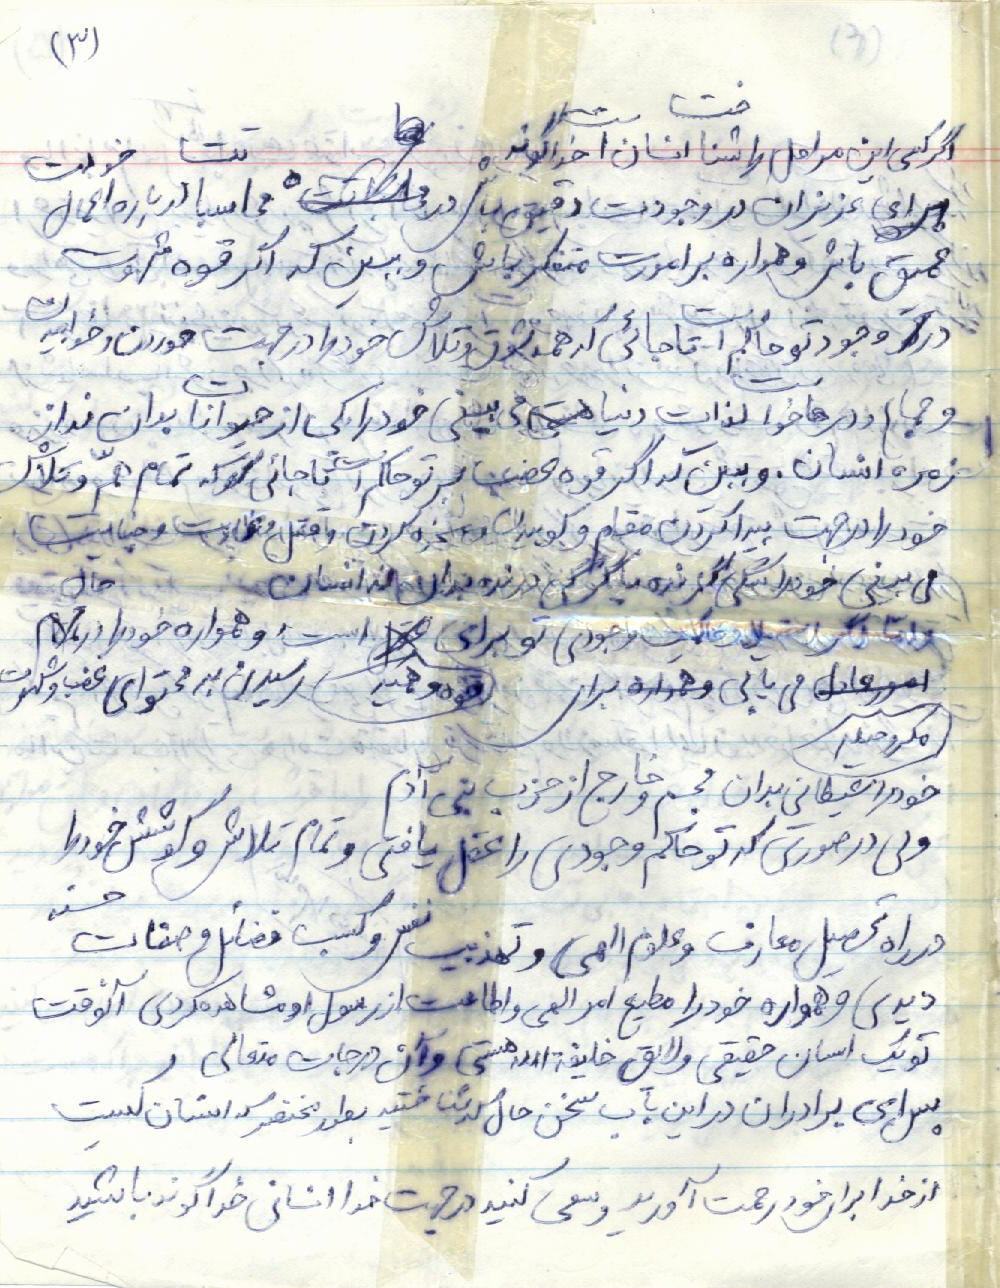 (۳)
اگر کسی این مراحل را شناخت انسان است خداگونه
ای عزیزان در وجودت دقیق باش در محاسبات درباره اعمال خویش
عمیق باش و همواره بر امورت متفکر باش و ببین که اگر قوه شهوت
در وجود تو حاکم است تا جائی که همه شوق و تلاش خود را در جهت خوردن و خوابیدن
و جماع و در ها خواست لذات دنیا می بینی خود را یکی از حیوانات بدان نه از
زمره انسان. و ببین که اگر قوه غضب بر تو حاکم است تا جائی که تمام همّ و تلاش
خود را در جهت پیدا کردن مقام و کوبیدن و کردن و قتل و و جنایت
می بینی خود را سگی گزنده یا گرگی درنده بدان نه انسان حال
وجودی تو برای است، و همواره خود را در
می یابی و همواره برای رسیدن به محتوای غضب و شهوت
مکر و حیله
خود را شیطانی بدان مجسم و خارج از حزب بنی آدم
ولی در صورتی که تو حاکم وجودی را عقل یافتی و تمام تلاش و کوشش خود را
در راه تحصیل معارف و علوم الهی و تهذیب نفس و کسب فضائل و صفات حسنه
دیدی و همواره خود را مطیع امر الهی و اطاعت از رسول او مشاهده کردی آنوقت
تو یک انسان حقیقی و لایق خلیفة الله هستی و آن درجات متعالی و
پس ای برادران در این باب سخن حال که شناختید بطور مختصر که انسان کیست
از خدا برای خود رحمت آورید و سعی کنید در جهت خدا انسانی خداگونه باشید